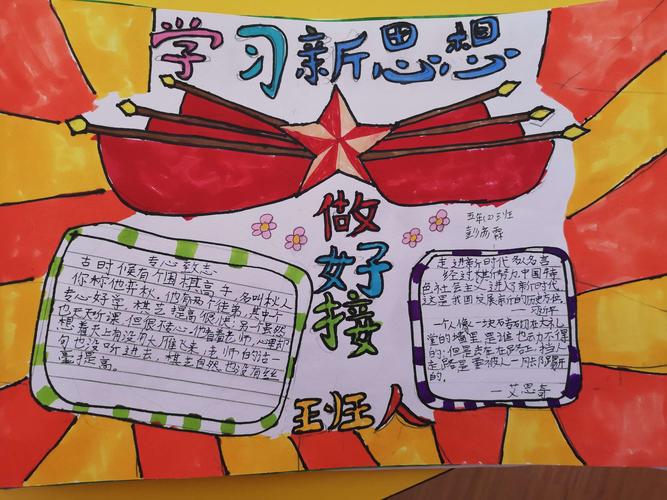 学习新思想
做
好
接
班人
五年(2)班
专心致志
古时候有个围棋高手,名叫秋人
你称他弈秋。他有两个徒弟,其中
专心好学,棋艺提高很快,另一虽然
也天天听课,但很粗心,他看着老师,心里却
想着天上有没有大雁飞来,老师的话一
句也没听进去,棋艺自然也没有丝
毫提高。
走进新时代 名言
经过长期努力,中国特
色社会主义进入了新时代
这是我国发展新的历史方位
——习近平
一个人像一块砖砌在大礼
堂的墙里,是谁也动不得
的;但是丢在路上,挡人
走路是要被人一脚踢开
的。
—艾思奇